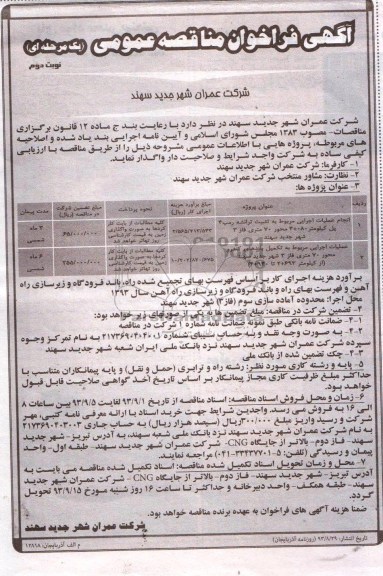 آگهی فراخوان مناقصه عمومی (یک مرحله ای)
نوبت دوم
شرکت عمران شهر جدید سهند
شرکت عمران شهر جدید سهند در نظر دارد با رعایت بند ج ماده ۱۲ قانون برگزاری
مناقصات- مصوب ۱۳۸۳ مجلس شورای اسلامی و آیین نامه اجرایی بند یاد شده و اصلاحیه
های مربوطه، پروژه هایی با اطلاعات عمومی مشروحه ذیل را از طریق مناقصه با ارزیابی
کیفی ساده به شرکت واجد شرایط و صلاحیت دار واگذار نماید.
۱- کارفرما: شرکت عمران شهر جدید سهند
۲- نظارت: مشاور منتخب شرکت عمران شهر جدید سهند
۳- عنوان پروژه ها:
ردیف عنوان پروژه مبلغ برآورد هزینه اجرای کار (ریال) نحوه پرداخت مبلغ تضمین شرکت در مناقصه (ریال) مدت پیمان
۱ انجام عملیات اجرایی مربوط به تثبیت ترانشه زمین پل کیلومتر محور ۷۰ متری فاز ۳ شهر جدید سهند
۲ عملیات اجرایی مربوط به تکمیل محور ۷۰ متری فاز ۳ شهر جدید سهند
برآورد هزینه اجرای کار بر اساس فهرست بهای تجمیع شده راه، باند فرودگاه و زیرسازی راه
آهن و فهرست بهای راه و باند فرودگاه و زیرسازی راه آهن سال ۱۳۹۳
محل اجرا: محدوده آماده سازی سوم (فاز۳) شهر جدید سهند
۴- تضمین شرکت در مناقصه: مبلغ تضمین ها به یکی از صورتهای زیر خواهد بود:
۴-۱- ضمانت نامه بانکی طبق نمونه ضمانت نامه شماره ۱ شرکت در مناقصه
۴-۲- به صورت وجه نقد و یا حساب شبای شماره به نام تمرکز وجوه
سپرده شرکت عمران شهر جدید سهند نزد بانک ملی ایران شعبه شهر جدید سهند
۴-۳- چک تضمین شده از بانک ملی
۵- پایه و رشته کاری مورد نظر: رشته راه و ترابری (حمل و نقل) و پایه پیمانکاران متناسب با
حداکثر مبلغ ظرفیت کاری مجاز پیمانکار بر اساس تاریخ اخذ گواهی صلاحیت قابل قبول
خواهد بود.
۶- زمان و محل فروش اسناد مناقصه: اسناد مناقصه از تاریخ ۹۳/۹/۱ لغایت ۹۳/۹/۵ بین ساعات ۸
الی ۱۶ به فروش می رسد. واجدین شرایط جهت خرید اسناد با ارائه معرفی نامه کتبی، مهر
شرکت و رسید واریز مبلغ ۳۰۰/۰۰۰ ریال (سیصد هزار ریال) به حساب جاری ۲۱۷۳۶۹۰۲۰۳۰۰۳
به نام شرکت عمران شهر جدید سهند نزد بانک ملی شعبه سهند، به آدرس تبریز- شهر جدید
سهند- فاز دوم- بالاتر از جایگاه CNG- شرکت عمران شهر جدید سهند- طبقه اول- واحد
پیمان و رسیدگی (تلفن: ۵-۳۳۴۳۷۷۰۱-۰۴۱) مراجعه نمایند.
۷- محل و زمان تحویل اسناد تکمیل شده مناقصه: اسناد تکمیل شده مناقصه می بایست به
آدرس تبریز- شهر جدید سهند- فاز دوم- بالاتر از جایگاه CNG - شرکت عمران شهر جدید
سهند- طبقه همکف- واحد دبیرخانه و حداکثر تا ساعت ۱۶ روز شنبه مورخ ۹۳/۹/۱۵ تحویل
گردد.
ضمنا هزینه آگهی های فراخوان به عهده برنده مناقصه خواهد بود.
شرکت عمران شهر جدید سهند
تاریخ انتشار: ۹۳/۸/۲۹ (روزنامه آذربایجان)
م الف آذربایجان: ۱۲۹۱۸